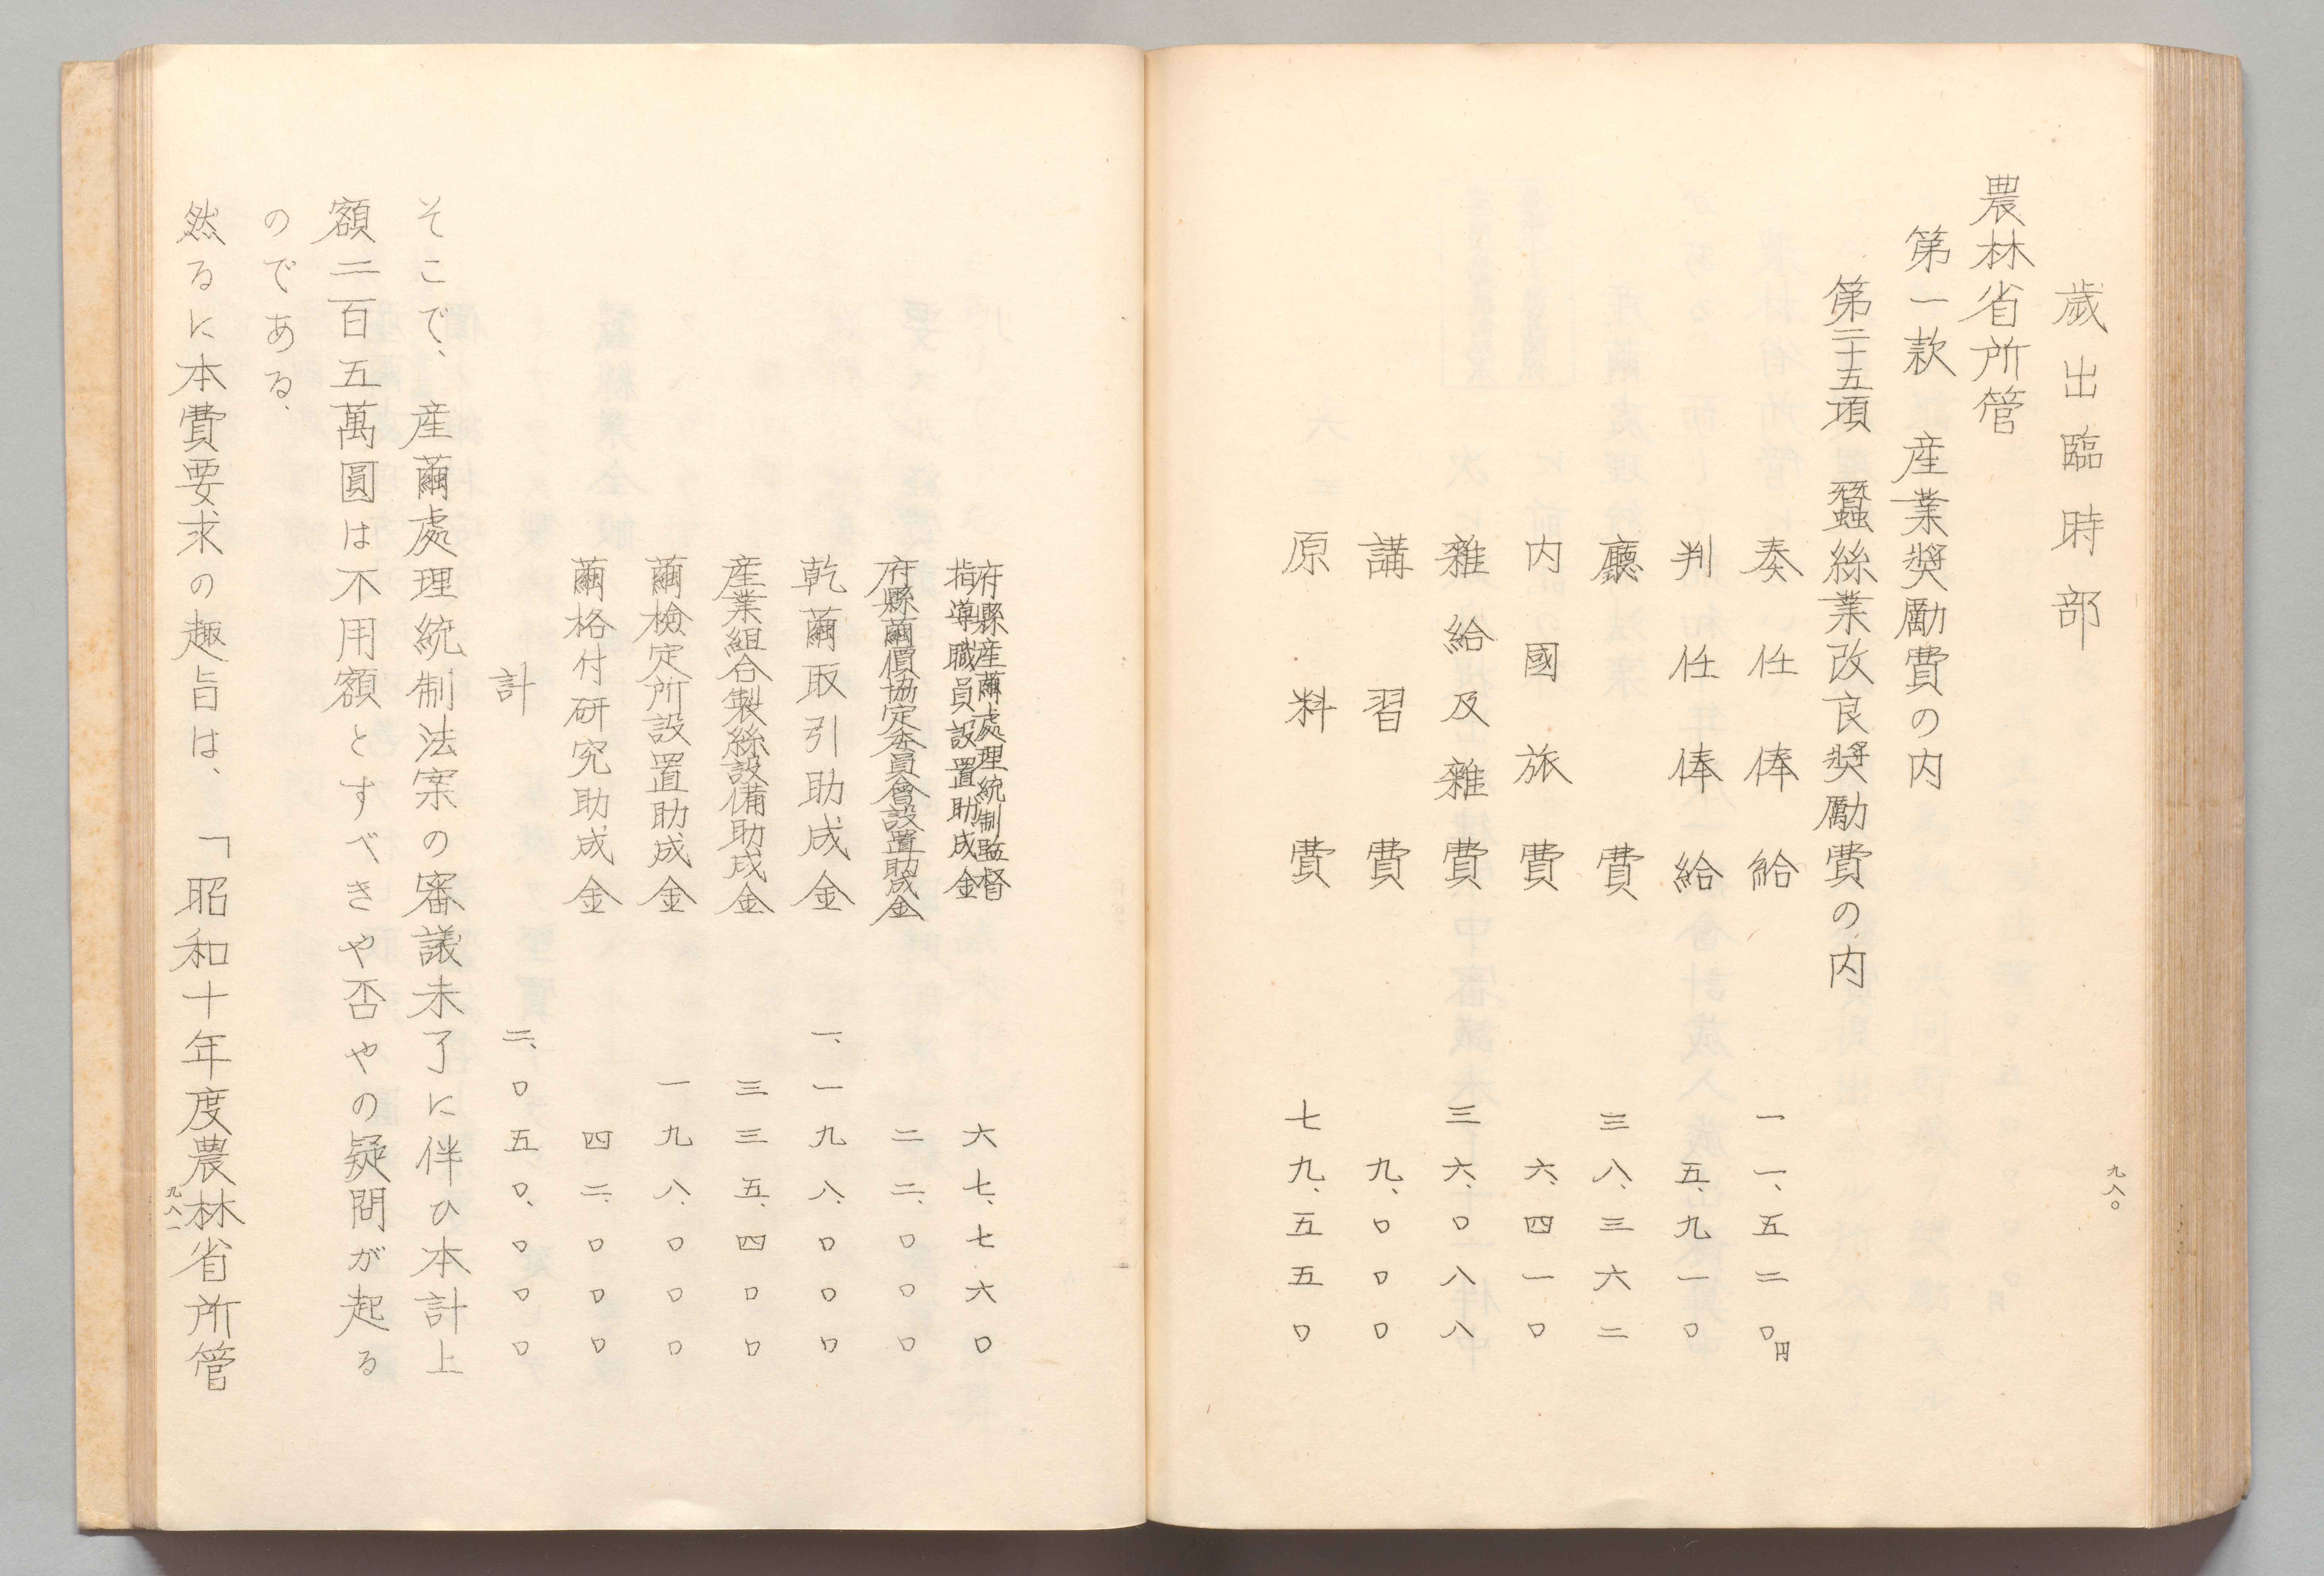 歳出臨時部
農林省所管
第一款　産業奬勵費の内
第二十五項　蠶絲業改良奬勵費の内
奏任俸給　一一、五二〇円
判任俸給　五、九一〇
廳費　三八、三六二
内國旅費　六、四一〇
雜給及雜費　三六、〇八八
講習費　九、〇〇〇
原料費　七九、五五〇
九八〇
府縣産繭處理統制監督
指導職員設置助成金　六七、七六〇
府縣繭價協定委員會設置助成金　二二、〇〇〇
乾繭取引助成金　一、一九八、〇〇〇
産業組合製絲設備助成金　三三五、四〇〇
繭檢定所設置助成金　一九八、〇〇〇
繭格付研究助成金　四二、〇〇〇
計　二、〇五〇、〇〇〇
そこで、産繭處理統制法案の審議未了に伴ひ本計上
額二百五萬圓は不用額とすべきや否やの疑問が起る
のである、
然るに本費要求の趣旨は、「昭和十年度農林省所管
九八一